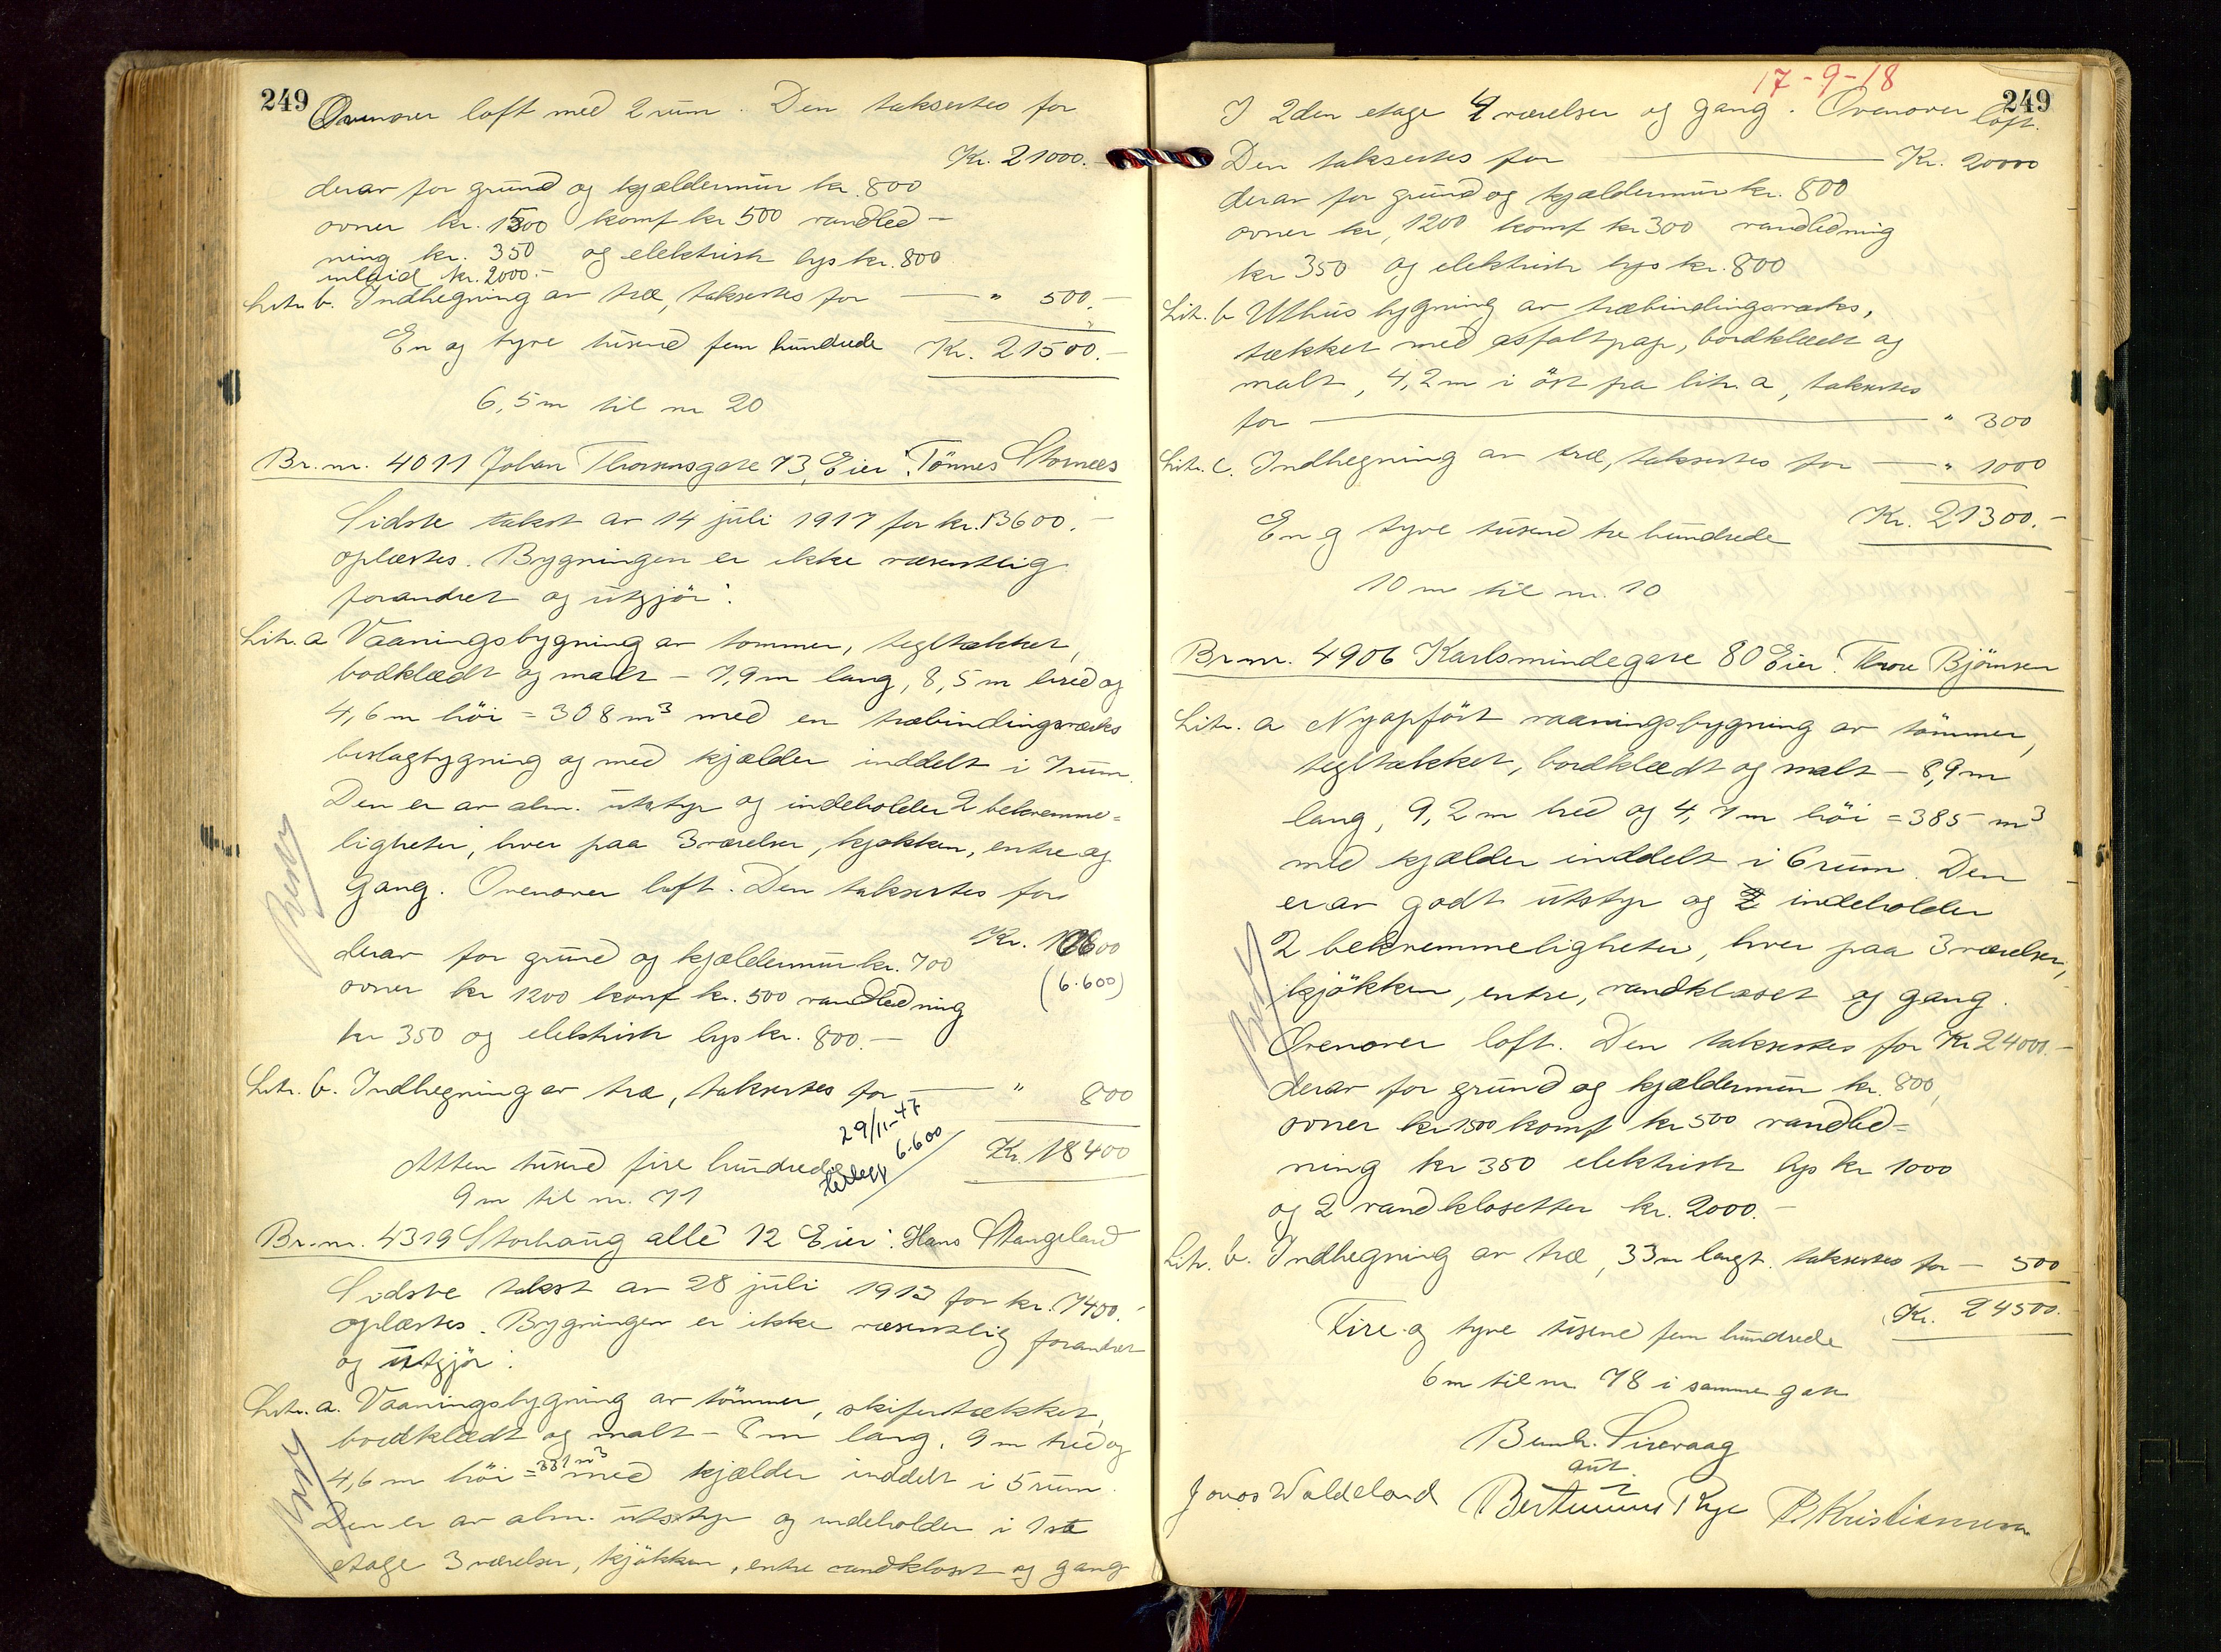 249
Ovenover loft med 2 rum. Den takseretes for
Kr. 21000.-
derav for grund og kjældermur kr. 800
ovner kr. 1500 komf kr 500 vandled-
ning kr. 350 og elektrisk lys kr. 800
inlaid kr. 2000.-
Litr. b. Indhegning av træ, taksertes for — " 500.-
En og tyve tusend fem hundrede Kr. 21500.-
6,5 m til nr 20
Br. nr. 4011 Johan Thorsensgate 73, Eier: Tönnes Stornes
Sidste takst av 14 juli 1917 for kr. 13600.-
oplæstes. Bygningen er ikke væsentlig
forandret og utgjör:
Litr. a Vaaningsbygning av tommer, tegltækket,
bordklædt og malt - 7,9 m lang, 8,5 m bred og
4,6 m höi = 308 m³ med en træbindingsværks
bislagbygning og med kjælder inddelt i 7 rum.
Den er av alm. utstyr og indeholder 2 bekvemme-
ligheter, hver paa 3 værelser, kjøkken, entre og
gang. Ovenover loft. Den taksertes for
Kr. 17600
derav for grund og kjældermur kr. 700
(6.600)
ovner kr 1200 komf kr. 500 vandledning
kr 350 og elektrisk lys kr. 800.-
Litr. b. Indhegning av træ, taksertes for — " 800
29/11-47
6.600
Atten tusend fire hundrede Kr. 18400
9 m til nr. 71
Br. nr. 4319 Storhaug allé 12 Eier: Hans Stangeland
Sidste takst av 28 juli 1913 for kr. 7400.-
oplæstes. Bygningen er ikke væsentlig forandret
og utgjör:
Litr. a. Vaaningsbygning av tömmer, skifertækket,
bordklædt og malt - 8 m lang, 9 m bred og
4,6 m höi = 331 m³ med kjælder inddelt i 5 rum.
Den er av alm. utstyr og indeholder i 1ste
etage 3 værelser, kjökken, entre vandkloset og gang
17-9-18
249
I 2den etage 4 værelser og gang. Ovenover loft.
Den taksertes for — Kr. 20000
derav for grund og kjældermur kr. 800
ovner kr, 1200 komf kr 300 vandledning
kr 350 og elektrisk lys kr. 800
Litr. b Uthus bygning av træbindingsværks,
tækket med asfaltpap, bordklædt og
malt, 4,2 m i öst fra litr. a, taksertes
for — " 300
Litr. c. Indhegning av træ, taksertes for — " 1000
En og tyve tusend tre hundrede Kr. 21300.-
10 m til nr. 10
Br. nr. 4906 Karlsmindegate 80 Eier: Thore Björnsen
Litr. a Nyopfört vaaningsbygning av tömmer,
tegltækket, bordklædt og malt - 8,9 m
lang, 9,2 m bred og 4,7 m höi = 385 m³
med kjælder inddelt i 6 rum. Den
er av godt utstyr og indeholder
2 bekvemmeligheter, hver paa 3 værelser,
kjökken, entre, vandkloset og gang.
Ovenover loft. Den taksertes for Kr 24000.-
derav for grund og kjældermur kr. 800,
ovner kr 1500 komf kr 500 vandled-
ning kr 350 elektrisk lys kr 1000
og 2 vandklosetter kr. 2000.-
Litr. b. Indhegning av træ, 33 m langt. taksertes for — 500
Kr. 24500.-
Fire og tyve tusend fem hundrede
6 m til nr 78 i samme gate
Bernh. Sirevaag
aut.
Jonas Waldeland Bertinius Rye B Kristiansen